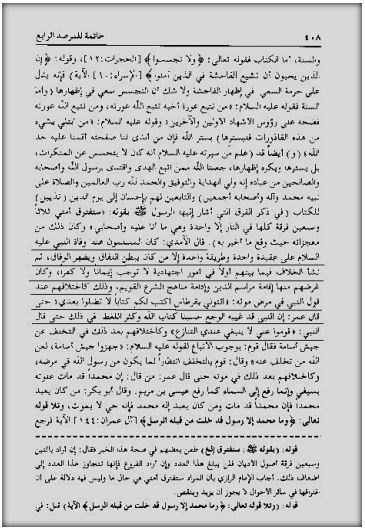 ٤٠٨ خاتمة للمرصد الرابع
والسنة، أما الكتاب فقوله تعالى: ﴿ولا تجسسوا﴾ [الحجرات:١٢]، وقوله: ﴿إن
الذين يحبون أن تشيع الفاحشة في الذين آمنوا﴾ [الإسراء:١٠ الآية] فإنه يدل
على حرمة السعي في إظهار الفاحشة ولا شك أن التجسس سعي في إظهارها (وأما
السنة فقوله عليه السلام: «من تتبع عورة أخيه تتبع الله عورته، ومن تتبع الله عورته
فضحه على رؤوس الأشهاد الأولين والآخرين» وقوله عليه السلام: «من ابتلي بشيء
من هذه القاذورات فليسترها) بستر الله فإن من أبدى لنا صفحته أقمنا عليه حد
الله» (و) أيضاً قد (علم من سيرته عليه السلام أنه كان لا يتجسس عن المنكرات،
بل يسترها ويكره إظهارها، جعلنا الله ممن اتبع الهدى واقتدى برسول الله وأصحابه
والصالحين من عباده إنه ولي الهداية والتوفيق والحمد لله رب العالمين والصلاة على
نبيه محمد وآله وأصحابه أجمعين) والتابعين لهم بإحسان إلى يوم الدين (تذييل)
للكتاب (في ذكر الفرق التي أشار إليها الرسول ﷺ بقوله: «ستفترق أمتي ثلاثاً
وسبعين فرقة كلها في النار إلا واحدة وهي ما أنا عليه وأصحابي» وكان ذلك من
معجزاته حيث وقع ما أخبر به). قال الآمدي: كان المسلمون عند وفاة النبي عليه
السلام على عقيدة واحدة وطريقة واحدة إلا من كان يبطن النفاق ويظهر الوفاق، ثم
نشأ الخلاف فيما بينهم أولاً في أمور اجتهادية لا توجب إيماناً ولا كفراً، وكان
غرضهم منها إقامة مراسم الدين وإدامة مناهج الشرع القويم، وذلك كاختلافهم عند
قول النبي في مرض موته: «ائتوني بقرطاس أكتب لكم كتاباً لا تضلوا بعدي» حتى
قال عمر: إن النبي قد غلبه الوجع حسبنا كتاب الله وكثر اللغط في ذلك حتى قال
النبي: «قوموا عني لا ينبغي عندي التنازع» وكاختلافهم بعد ذلك في التخلف عن
جيش أسامة فقال قوم: بوجوب الاتباع لقوله عليه السلام: «جهزوا جيش أسامة، لعن
الله من تخلف عنه» وقال: قوم بالتخلف انتظاراً لما يكون من رسول الله في مرضه،
وكاختلافهم بعد ذلك في موته حتى قال عمر: من قال: إن محمداً قد مات علوته
بسيفي وإنما رفع إلى السماء كما رفع عيسى بن مريم. وقال أبو بكر: من كان يعبد
محمداً فإن محمداً قد مات ومن كان يعبد إله محمد فإنه حي لا يموت، وتلا قوله
تعالى: ﴿وما محمد إلا رسول قد خلت من قبله الرسل﴾ [آل عمران:١٤٤ الآية] فرجع
قوله: (بقوله ﷺ: ستفترق إلخ) طعن بعضهم في صحة هذا الخبر فقال: إن أراد باثنين
وسبعين فرقة أصول الأديان فلن يبلغ هذا العدد وإن أراد الفروع فإنها تتجاوز هذا العدد إلى
أضعاف ذلك. أجاب الإمام الرازي بأن المراد ستفترق أمتي في حال ما وليس فيه دلالة على أن
افتراقها في سائر الأحوال لا يجوز أن يزيد وينقص.
قوله: (وتلا قوله تعالى: ﴿وما محمد إلا رسول قد خلت من قبله الرسل﴾ الآية) قيل: في